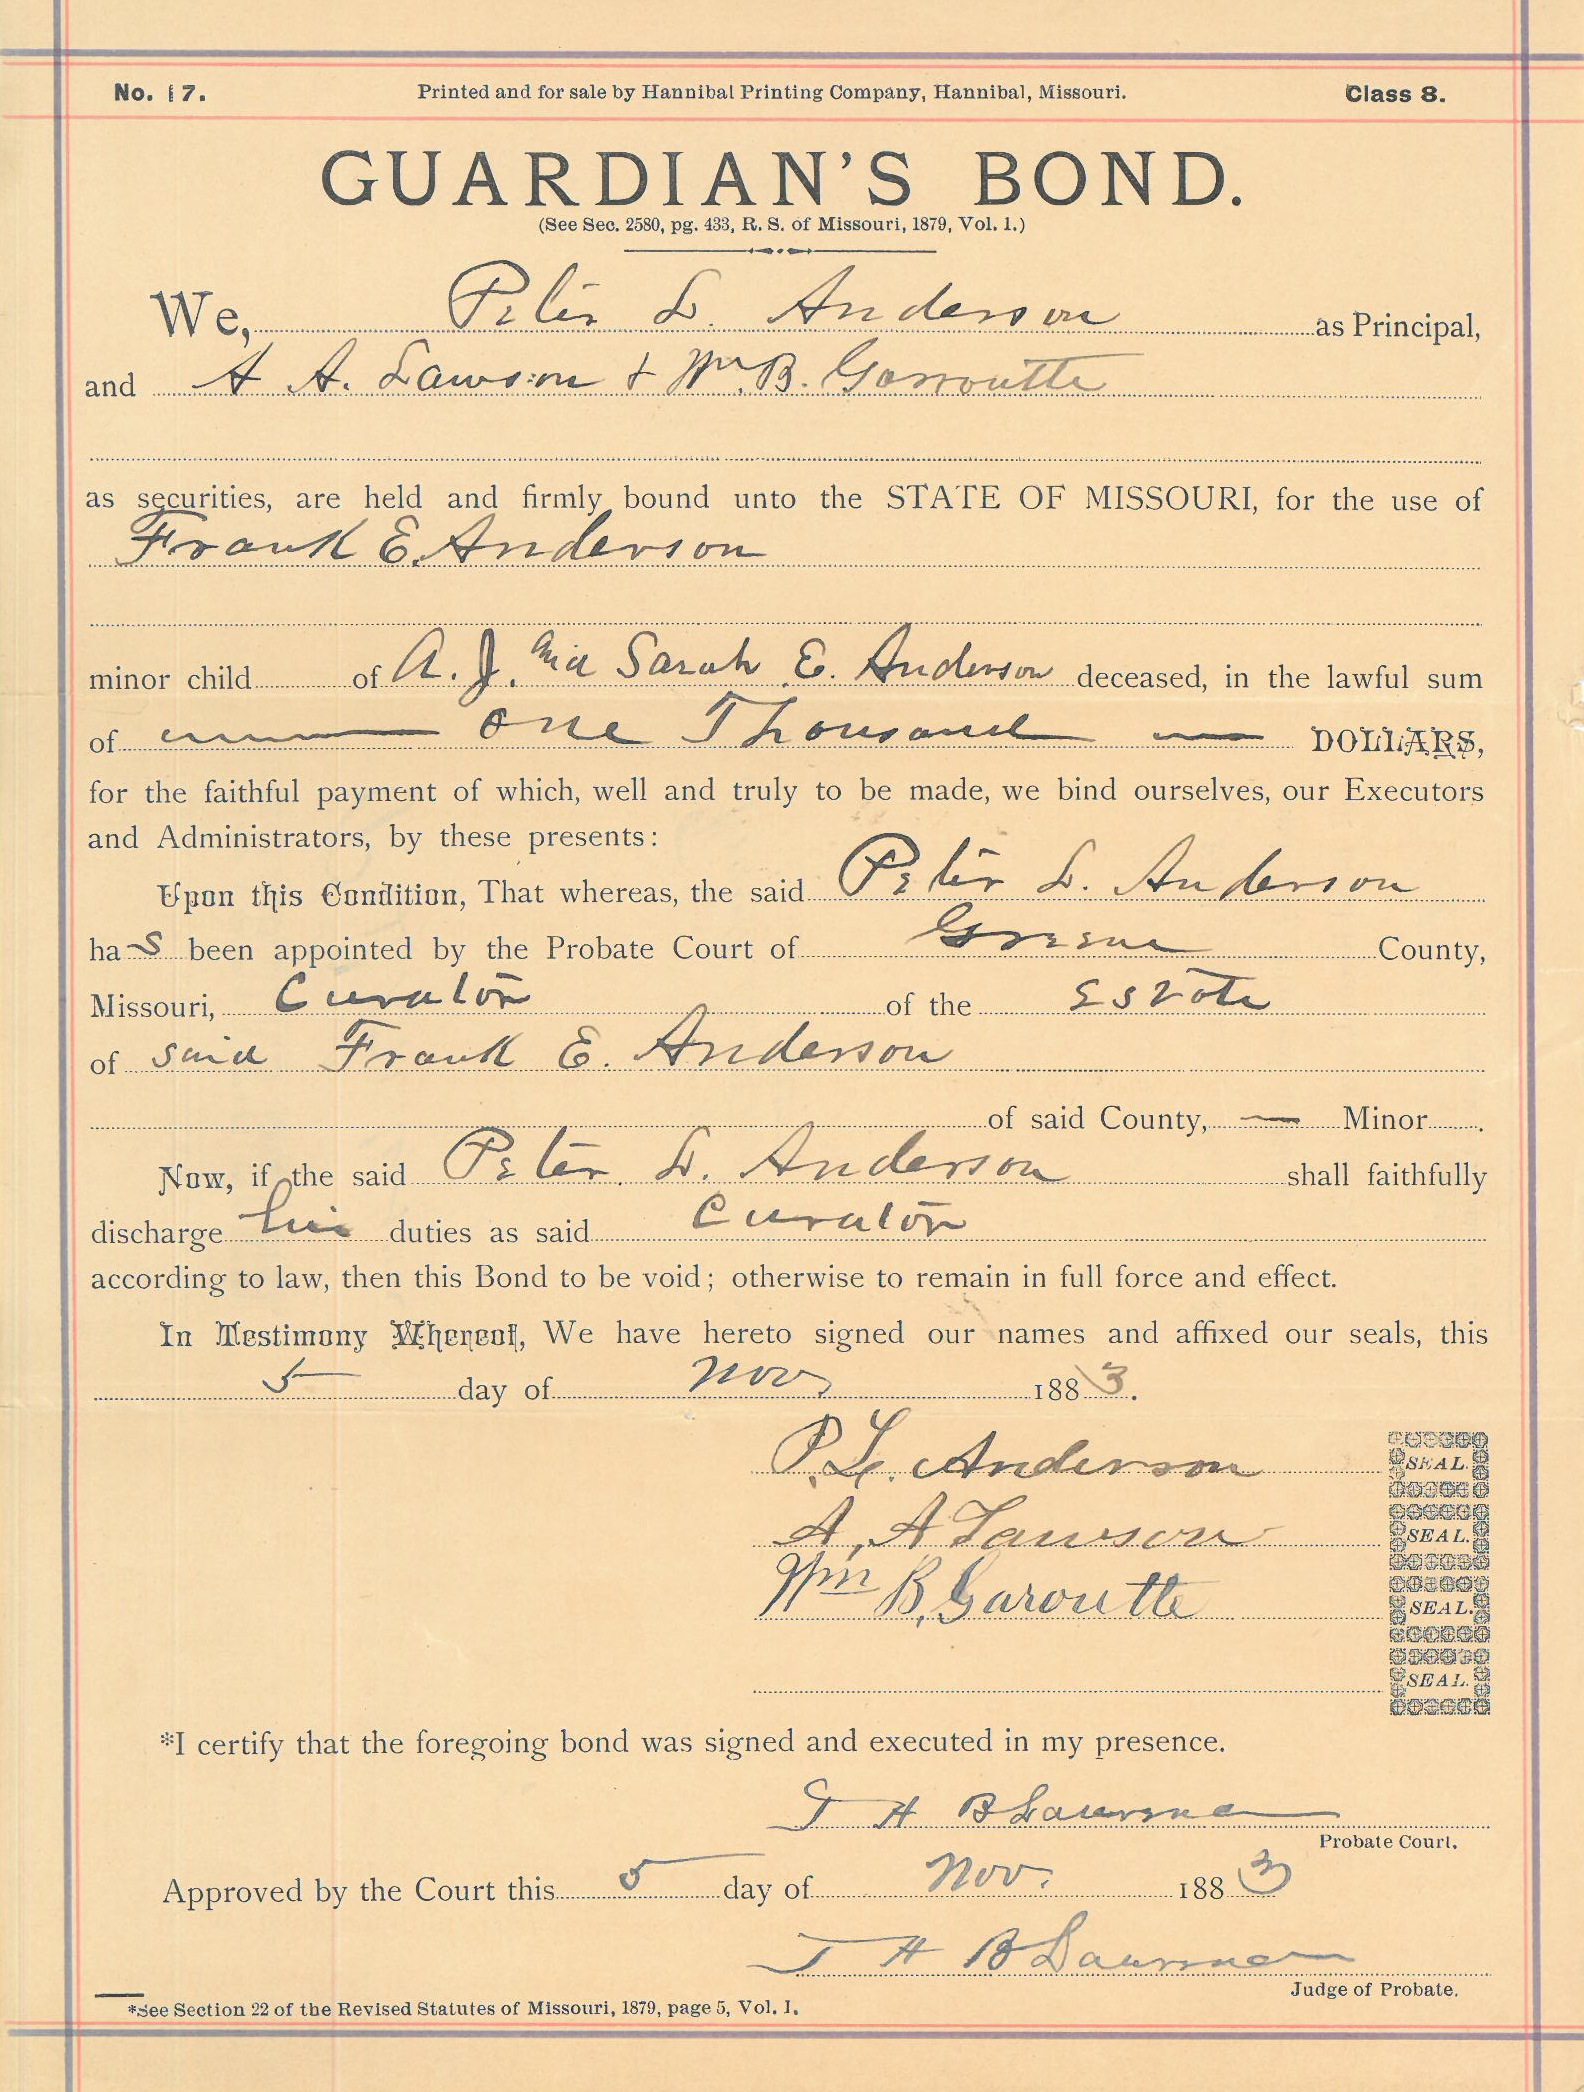 No. 17.
Printed and for sale by Hannibal Printing Company, Hannibal, Missouri.
Class 8.
GUARDIAN'S BOND.
(See Sec. 2580, pg. 433, R. S. of Missouri, 1879, Vol. 1.)
We, Peter L. Anderson as Principal,
and A A. Lawson & Wm. B. Garroutte
as securities, are held and firmly bound unto the STATE OF MISSOURI, for the use of
Frank E. Anderson
minor child of A. J. and Sarah E. Anderson deceased, in the lawful sum
of One Thousand DOLLARS,
for the faithful payment of which, well and truly to be made, we bind ourselves, our Executors
and Administrators, by these presents:
Upon this Condition, That whereas, the said Peter L. Anderson
has been appointed by the Probate Court of Greene County,
Missouri, Curator of the Estate
of said Frank E. Anderson
of said County, — Minor .
Now, if the said Peter L. Anderson shall faithfully
discharge his duties as said Curator
according to law, then this Bond to be void; otherwise to remain in full force and effect.
In Testimony Whereof, We have hereto signed our names and affixed our seals, this
5 day of Nov, 1883.
P. L. Anderson SEAL.
A. A Lawson SEAL.
Wm B. Garoutte SEAL.
SEAL.
*I certify that the foregoing bond was signed and executed in my presence.
T H B Lawrence
Probate Court.
Approved by the Court this 5 day of Nov. 1883
T H B Lawrence
Judge of Probate.
*See Section 22 of the Revised Statutes of Missouri, 1879, page 5, Vol. I.